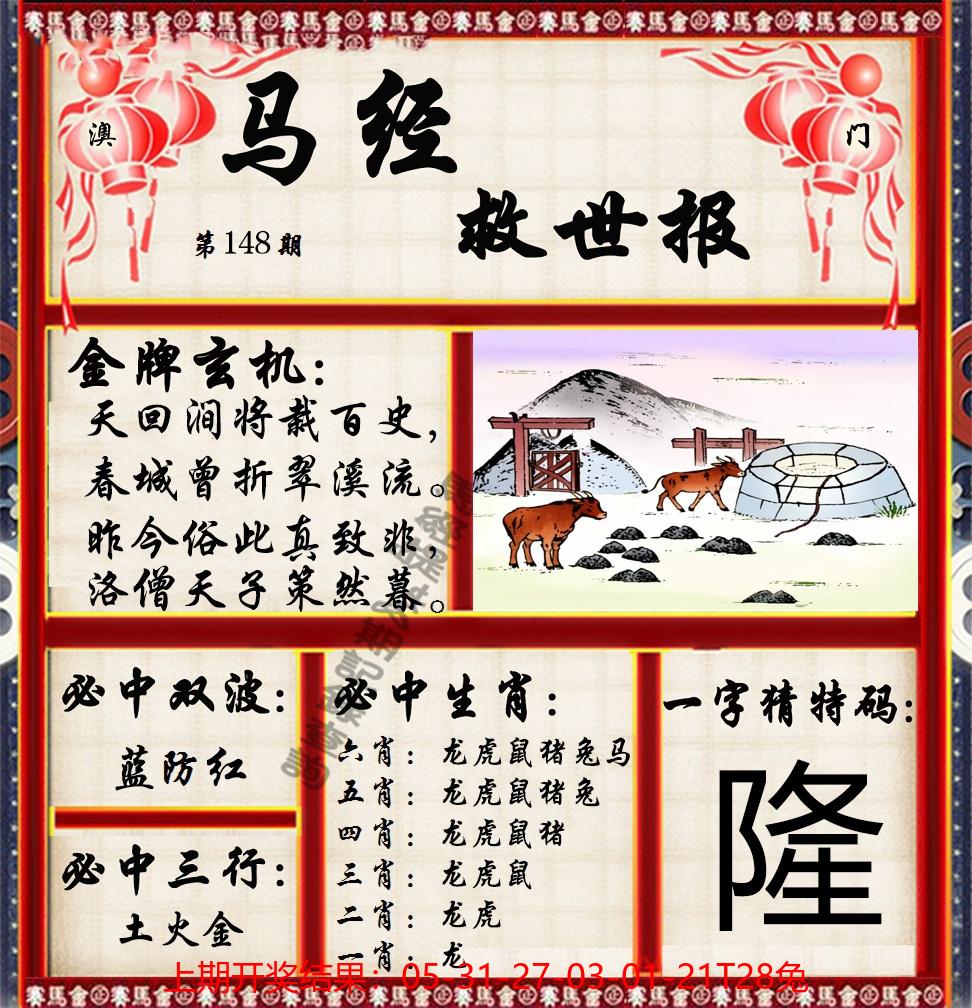 澳
门
马经
救世报
第148期
金牌玄机：
天回涧将栽百史，
春城曾折翠溪流。
昨今俗此真致非，
洛僧天子策然暮。
必中双波：
蓝防红
必中三行：
土火金
必中生肖：
六肖：龙虎鼠猪兔马
五肖：龙虎鼠猪兔
四肖：龙虎鼠猪
三肖：龙虎鼠
二肖：龙虎
一肖：龙
一字猜特码：
隆
上期开奖结果：05-31-27-03-01-21T28兔